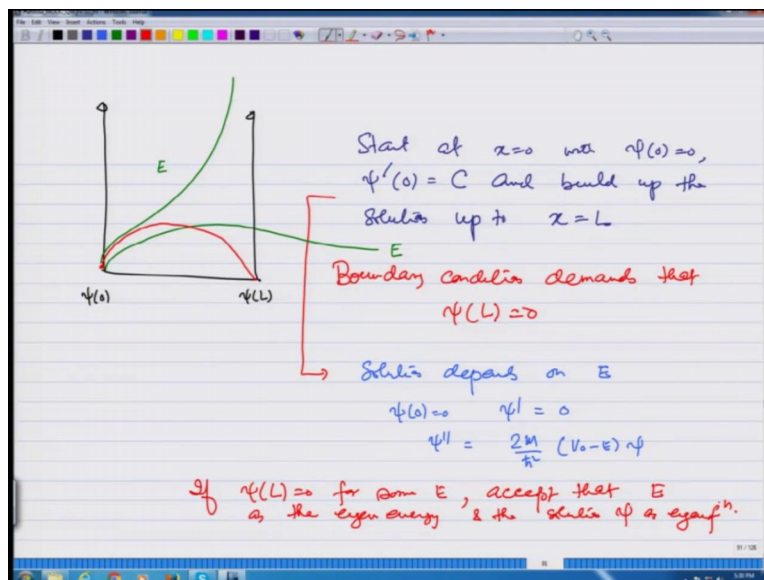 File Edit View Insert Actions Tools Help
E
E
ψ(0)
ψ(L)
Start at x=0 with ψ(0)=0,
ψ'(0) = C and build up the
Solution up to x = L
Boundary condition demands that
ψ(L) = 0
Solution depends on E
ψ(0)=0 ψ' = 0
ψ'' = 2m/ħ² (V₀-E) ψ
If ψ(L)=0 for some E, accept that E
as the eigen energy & the solution ψ as eigenfⁿ.
91 / 128
91
5:30 PM